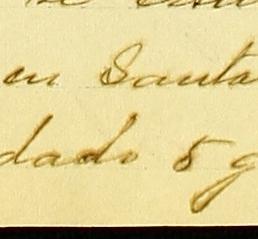 en Santa
dado 5 g